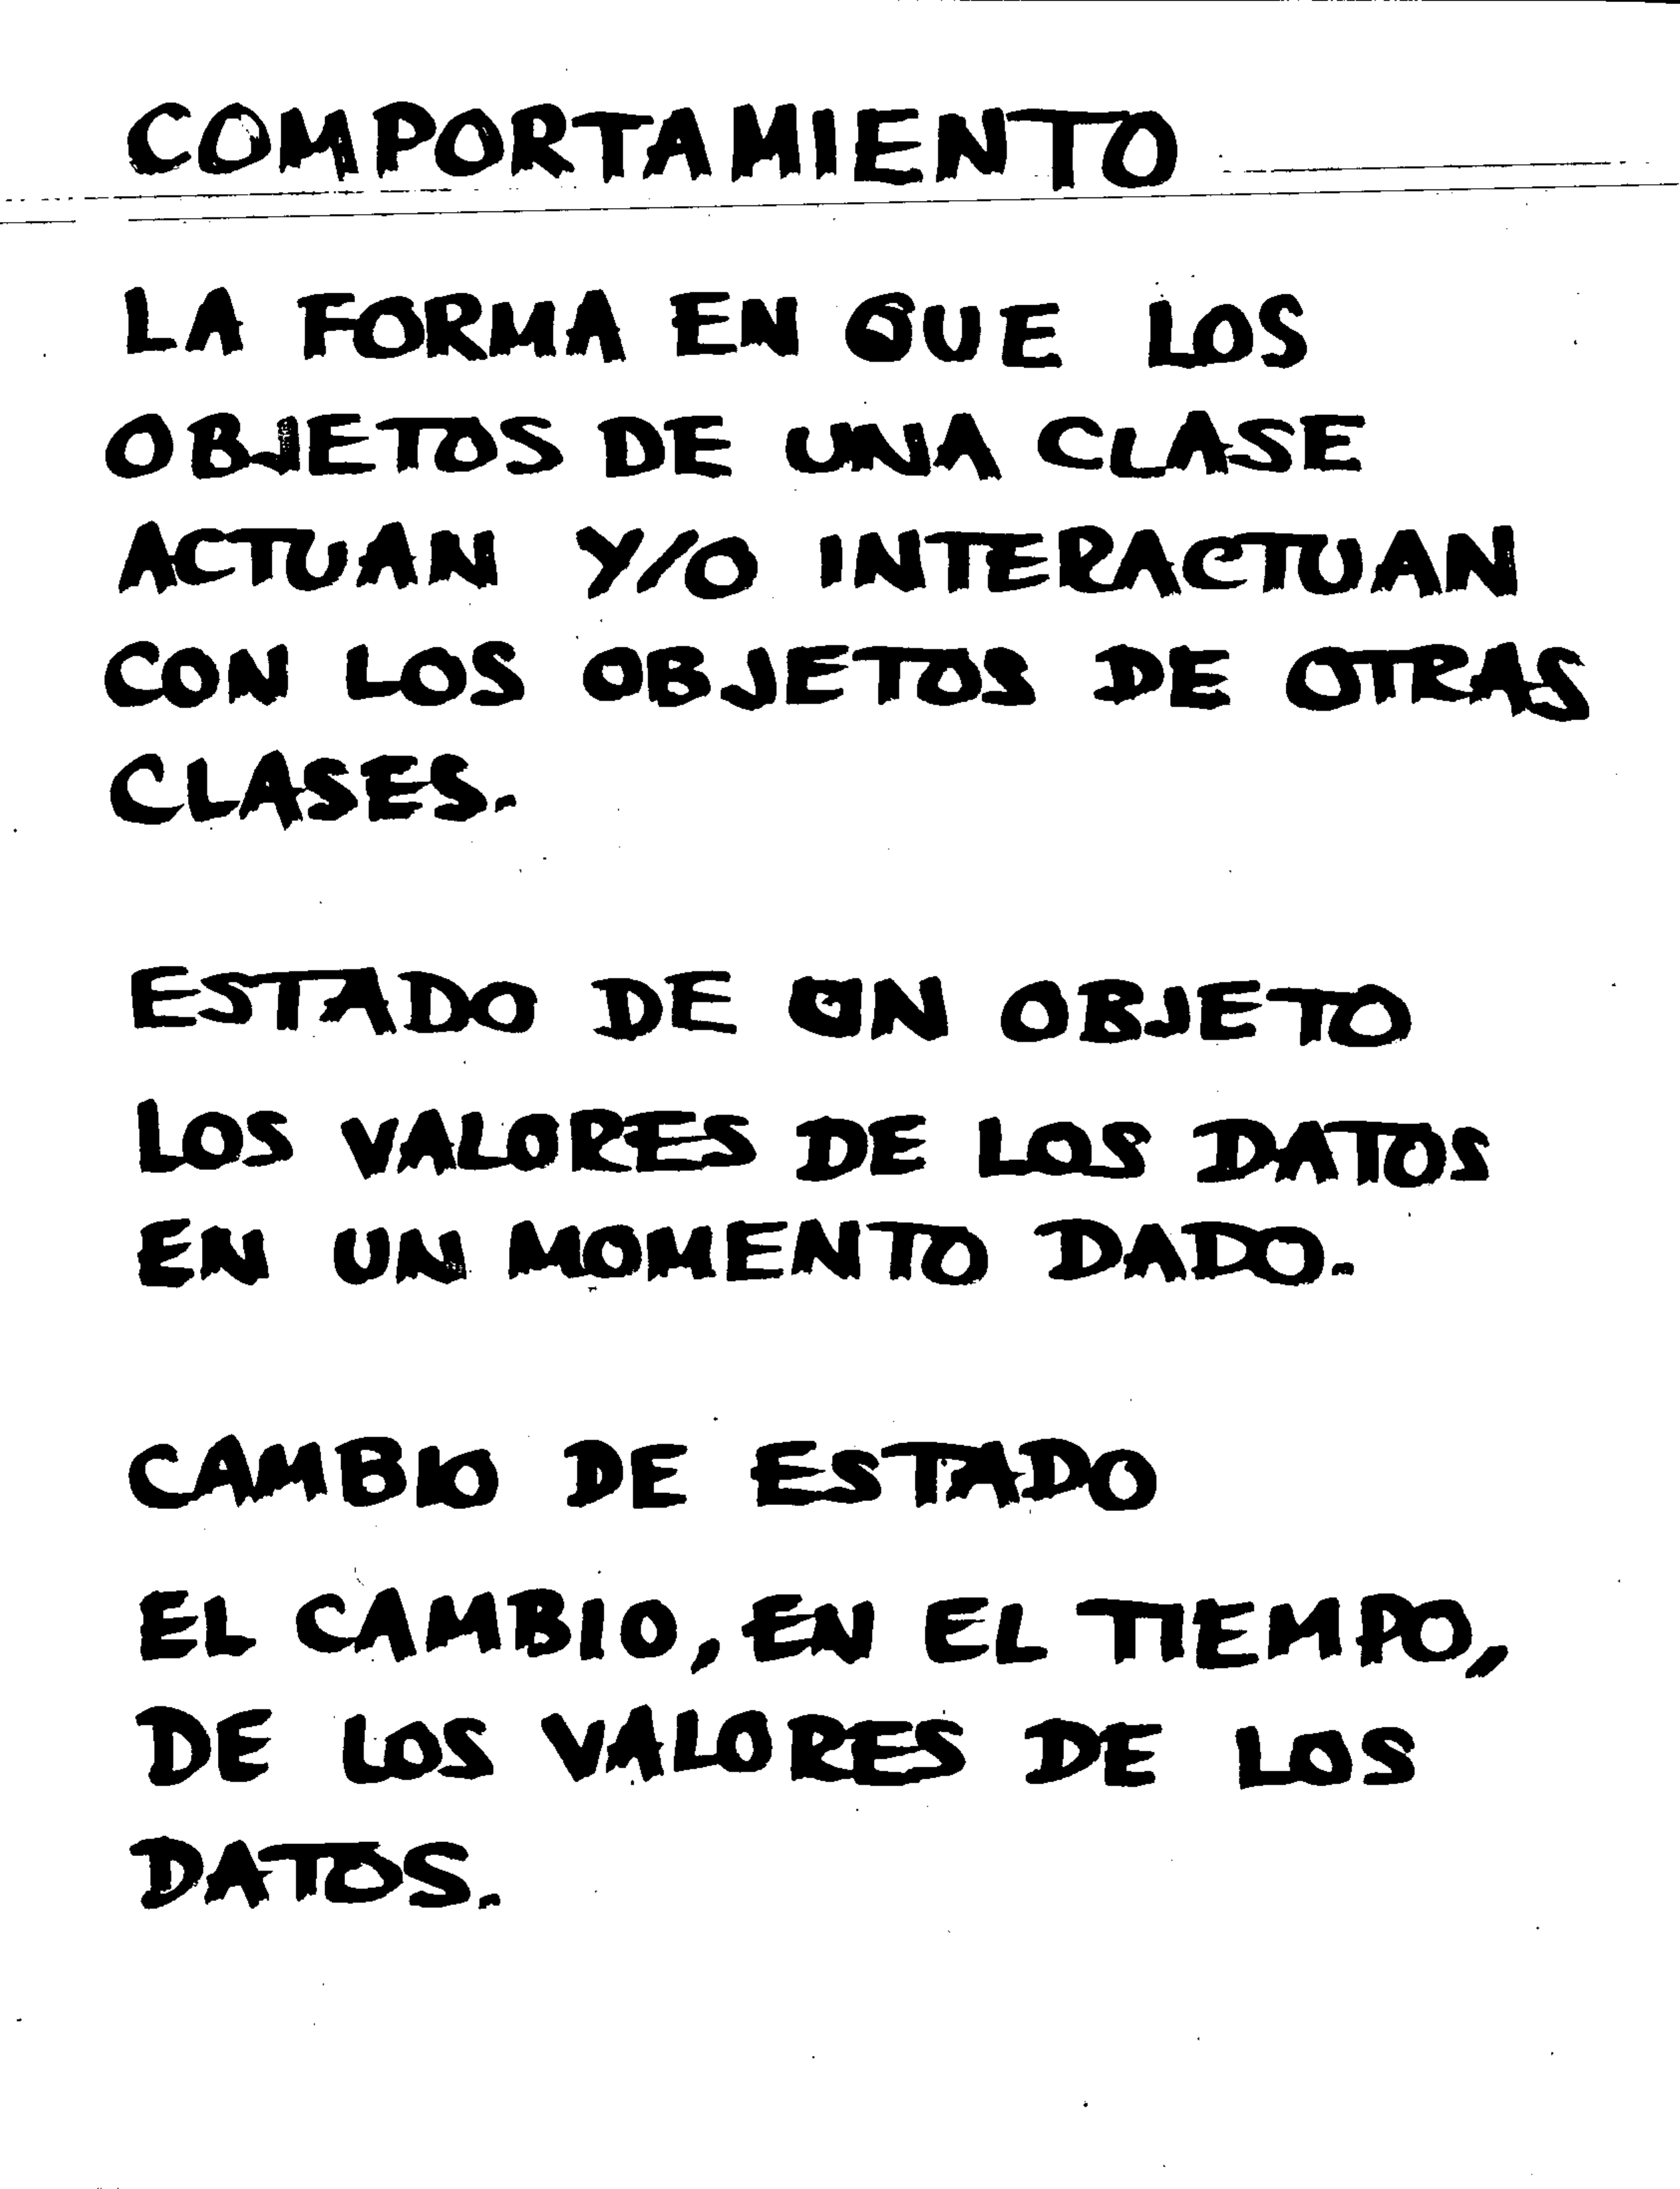 COMPORTAMIENTO
LA FORMA EN QUE LOS
OBJETOS DE UNA CLASE
ACTUAN Y/O INTERACTUAN
CON LOS OBJETOS DE OTRAS
CLASES.
ESTADO DE UN OBJETO
LOS VALORES DE LOS DATOS
EN UN MOMENTO DADO.
CAMBIO DE ESTADO
EL CAMBIO, EN EL TIEMPO,
DE LOS VALORES DE LOS
DATOS.